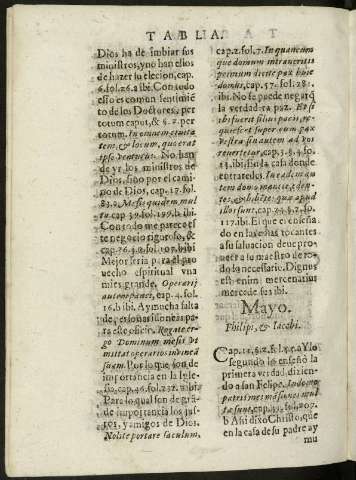 TABLA.
Dios ha de imbiar sus
ministros, y no han ellos
de hazer su elecion, cap.
6. fol. 26. a ibi. Con todo
esso es comun sentimiẽ
to de los Doctores, per
totum caput, & §. 2. per
totum. In omnem ciuita
tem, & locum, quo erat
ipse venturus. No han
de yr los ministros de
Dios, sino por el camî
no de Dios, cap. 17. fol.
83. a Messis quidem mul
ta cap. 39. fol. 196. b ibi
Con todo me parece es
te negocio riguroso, &
cap.
Mejor seria para el pro
uecho espiritual vna
mies grande. Operarij
autem pauci, cap. 4. fol.
16. b ibi. Ay mucha falta
de personas idoneas pa
ra este oficio. Rogate er-
go Dominum messis vt
mittat operarios in messẽ
suam. Por lo que son de
importancia en la Igle-
sia, cap. 46. fol. 237. b ibi
Para lo qual son de grã-
de importancia los jus-
tos, y amigos de Dios.
Nolite portare saculum,
cap. 2. fol. 7. In quamcum
que domum intraueritis
primum dicite pax huic
domui, cap. 57. fol. 281.
ibi. No se puede negar q̃
la verdad ra paz. Et si
ibi fuerit filius pacis, re-
quiescet super eum pax
vestra sin autem ad vos
reuertetur, cap. 3. §. 4. fo.
13. ibi si en la casa donde
entraredes. In eadem au
tem domo manete, eden-
tes, & bibẽtes quæ apud
illos sunt, cap. §. 2. fo.
117. ibi. El que es enseña
do en las cosas tocantes
a su saluacion deue pro-
ueer a su maestro de to-
do lo necessario. Dignus
est enim mercenarius
mercede sua ibi.
Mayo.
Philipi, & Iacobi.
Cap. 14. §. 2. f. Y lo
segundo le enseñò la
primera verdad, dizien-
do a san Felipe. In domo
patris mei mãsiones mul
tæ sunt, cap. 39. fol. 207.
b Assi dixo Christo, que
en la casa de su padre ay
mu